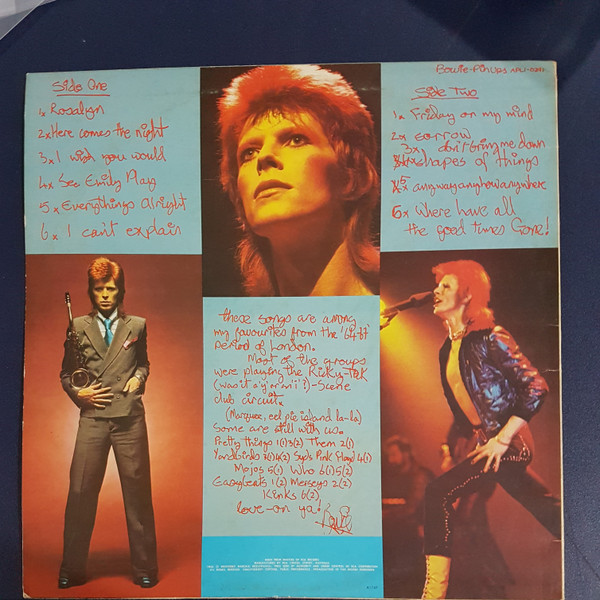 Side One
1x Rosalyn
2x Here comes the night
3x I wish you would
4x See Emily Play
5x Everythings alright
6x I can't explain
Bowie-Pinups
Side Two
1x Friday on my mind
2x sorrow
3x don't bring me down
shapes of things
5x anywayanyhowanywhere
6x Where have all
the good times Gone!
these songs are among
my favourites from the '64-67
period of London.
Most of the groups
were playing the Ricky-Tick
(was it a 'y' or an 'i'?)-Scene
club circuit.
(Marquee, eel pie island la-la)
Some are still with us.
Pretty things 1(1)3(2) Them 2(1)
Yardbirds 3(1)4(2) Syd's Pink Floyd 4(1)
Mojos 5(1) Who 6(1)5(2)
Easybeats 1(2) Merseys 2(2)
Kinks 6(2)
love-on ya!
Bowie